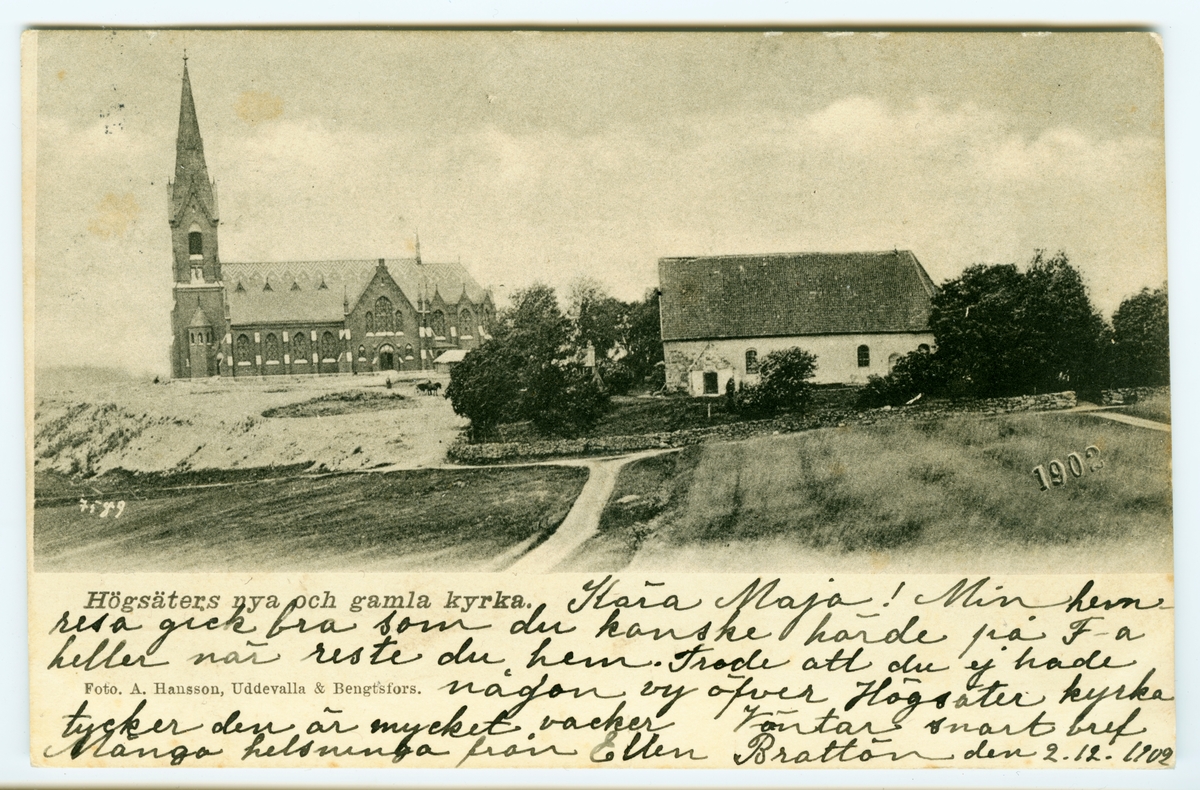 1902
7589
Högsäters nya och gamla kyrka. Kära Maja! Min hem-
resa gick bra som du kanske hörde på F-a
heller när reste du hem. Trode att du ej hade
Foto. A. Hansson, Uddevalla & Bengtsfors. någon vy öfver Högsäter kyrka
tycker den är mycket vacker Väntar snart bref
Många helsninga från Ellen Brattön den 2.12.1902